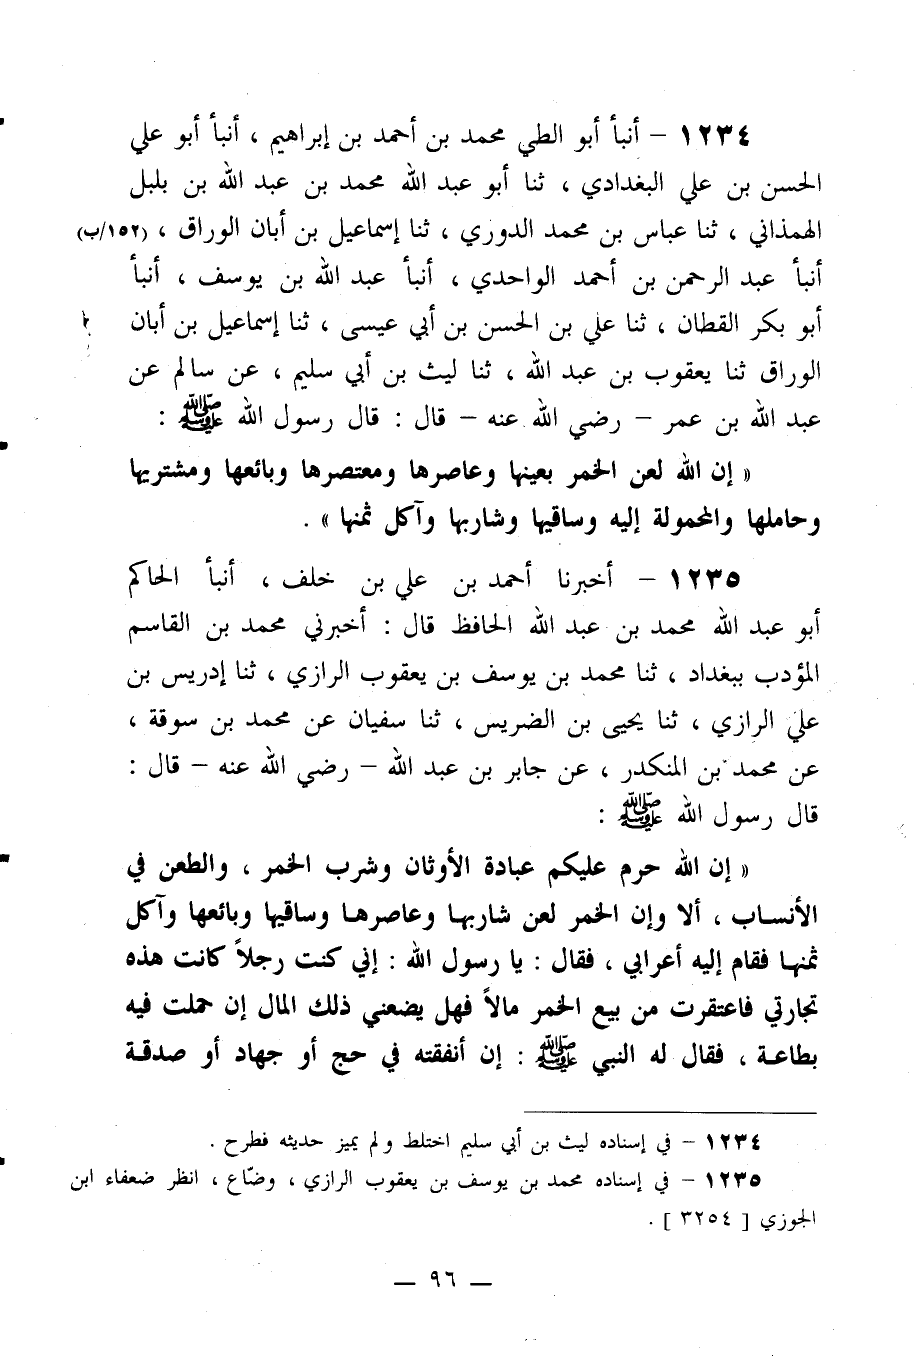 ١٢٣٤ – أنبأ أبو الطي محمد بن أحمد بن إبراهيم ، أنبأ أبو علي
الحسن بن علي البغدادي ، ثنا أبو عبد الله محمد بن عبد الله بن بلبل
الهمذاني ، ثنا عباس بن محمد الدوري ، ثنا إسماعيل بن أبان الوراق ، (١٥٢/ب)
أنبأ عبد الرحمن بن أحمد الواحدي ، أنبأ عبد الله بن يوسف ، أنبأ
أبو بكر القطان ، ثنا علي بن الحسن بن أبي عيسى ، ثنا إسماعيل بن أبان
الوراق ثنا يعقوب بن عبد الله ، ثنا ليث بن أبي سليم ، عن سالم عن
عبد الله بن عمر – رضي الله عنه – قال : قال رسول الله ﷺ :
« إن الله لعن الخمر بعينها وعاصرها ومعتصرها وبائعها ومشتريها
وحاملها والمحمولة إليه وساقيها وشاربها وآكل ثمنها » .
١٢٣٥ – أخبرنا أحمد بن علي بن خلف ، أنبأ الحاكم
أبو عبد الله محمد بن عبد الله الحافظ قال : أخبرني محمد بن القاسم
المؤدب ببغداد ، ثنا محمد بن يوسف بن يعقوب الرازي ، ثنا إدريس بن
علي الرازي ، ثنا يحيى بن الضريس ، ثنا سفيان عن محمد بن سوقة ،
عن محمد بن المنكدر ، عن جابر بن عبد الله – رضي الله عنه – قال :
قال رسول الله ﷺ :
« إن الله حرم عليكم عبادة الأوثان وشرب الخمر ، والطعن في
الأنساب ، ألا وإن الخمر لعن شاربها وعاصرها وساقيها وبائعها وآكل
ثمنها فقام إليه أعرابي ، فقال : يا رسول الله : إني كنت رجلاً كانت هذه
تجارتي فاعتقرت من بيع الخمر مالاً فهل يضعني ذلك المال إن حملت فيه
بطاعة ، فقال له النبي ﷺ : إن أنفقته في حج أو جهاد أو صدقة
١٢٣٤ – في إسناده ليث بن أبي سليم اختلط ولم يميز حديثه فطرح .
١٢٣٥ – في إسناده محمد بن يوسف بن يعقوب الرازي ، وضّاع ، انظر ضعفاء ابن
الجوزي [ ٣٢٥٤ ] .
— ٩٦ —